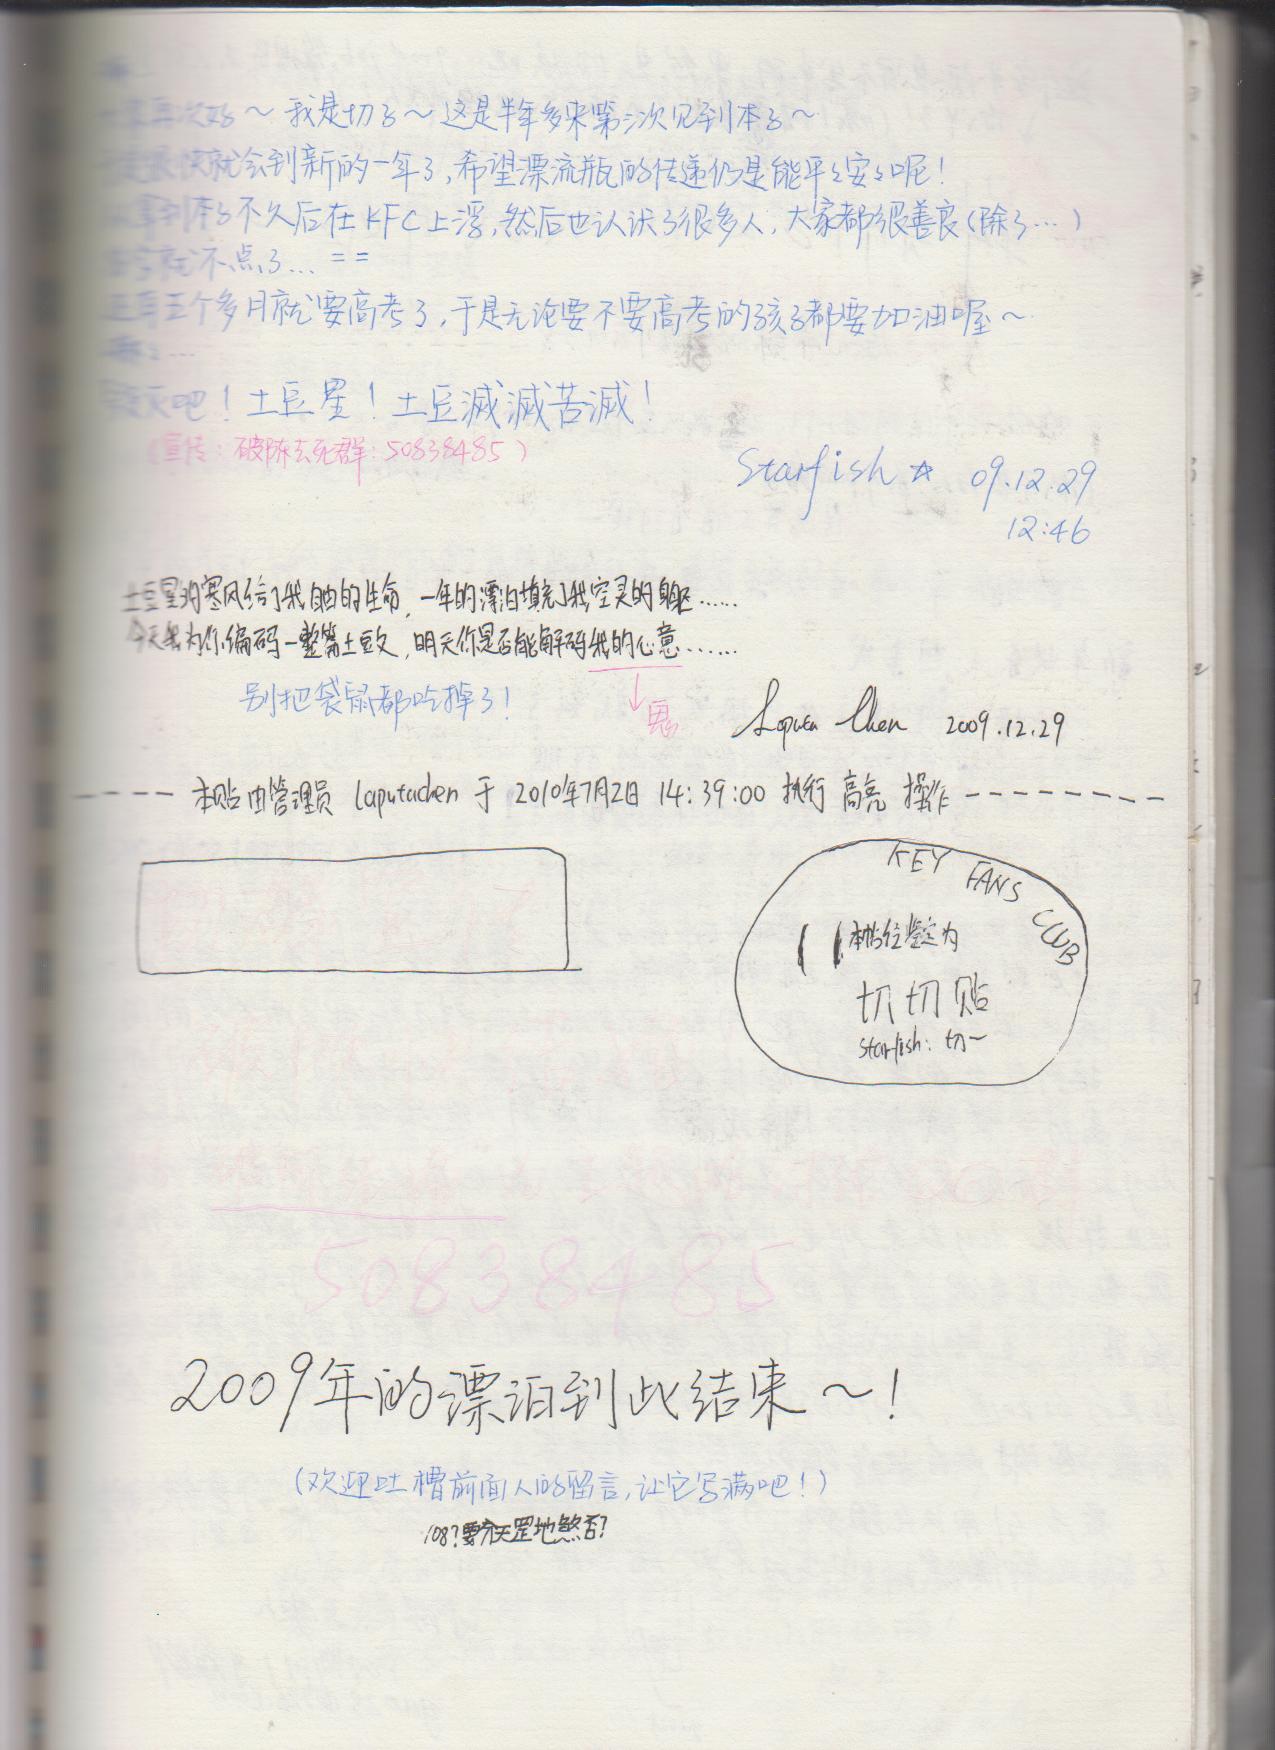 再次好～ 我是切子～ 这是半年多来第二次见到本子～
很快就会到新的一年了，希望漂流瓶的传递仍是能平平安安呢！
拿到本子不久后在KFC上浮，然后也认识了很多人，大家都很善良（除了…）
就不点了… ==
还有五个多月就要高考了，于是无论要不要高考的孩子都要加油喔～
…
毁灭吧！土豆星！土豆滅滅苦滅！
（宣传：破阵去死群：50838485）
Starfish ☆ 09.12.29
12:46
土豆星的寒风给了我自由的生命，一年的漂泊填充了我空灵的身躯……
今天我为你编码一整篇土豆文，明天你是否能解码我的心意……
别把袋鼠都吃掉了！
Laputa Chen 2009.12.29
---- 本贴由管理员 laputachen 于 2010年7月2日 14:39:00 执行 高亮 操作 --------
KEY FANS CLUB
本帖经鉴定为
切切贴
starfish：切一
50838485
2009年的漂泊到此结束～！
（欢迎吐槽前面人的留言，让它写满吧！）
108？要凑天罡地煞否？